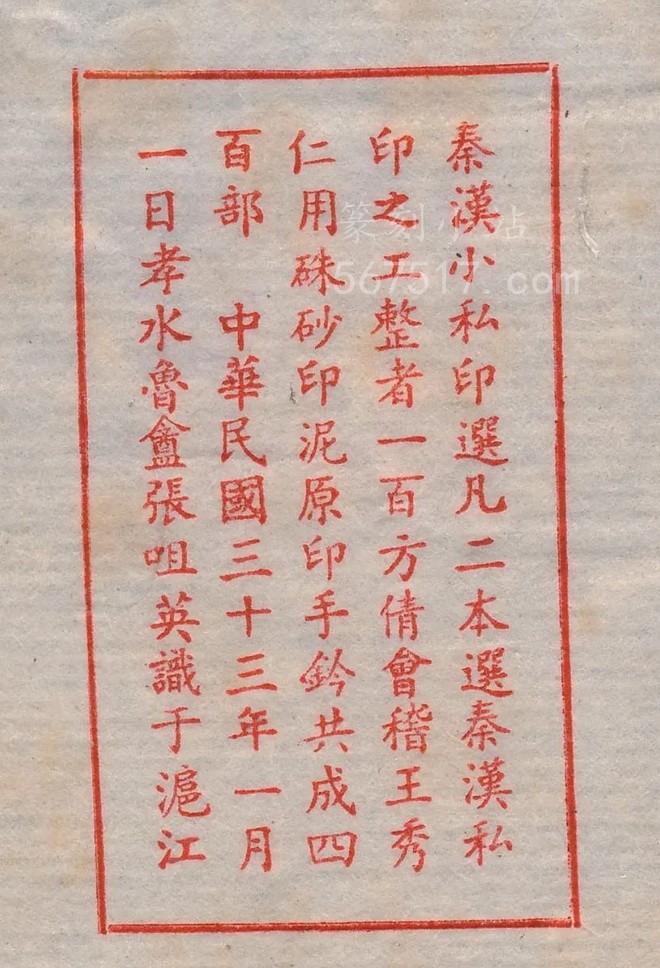 秦漢小私印選凡二本選秦漢私
印之工整者一百方倩會稽王秀
仁用硃砂印泥原印手鈐共成四
百部　中華民國三十三年一月
一日孝水魯盦張咀英識于滬江
篆刻小站
567517.com